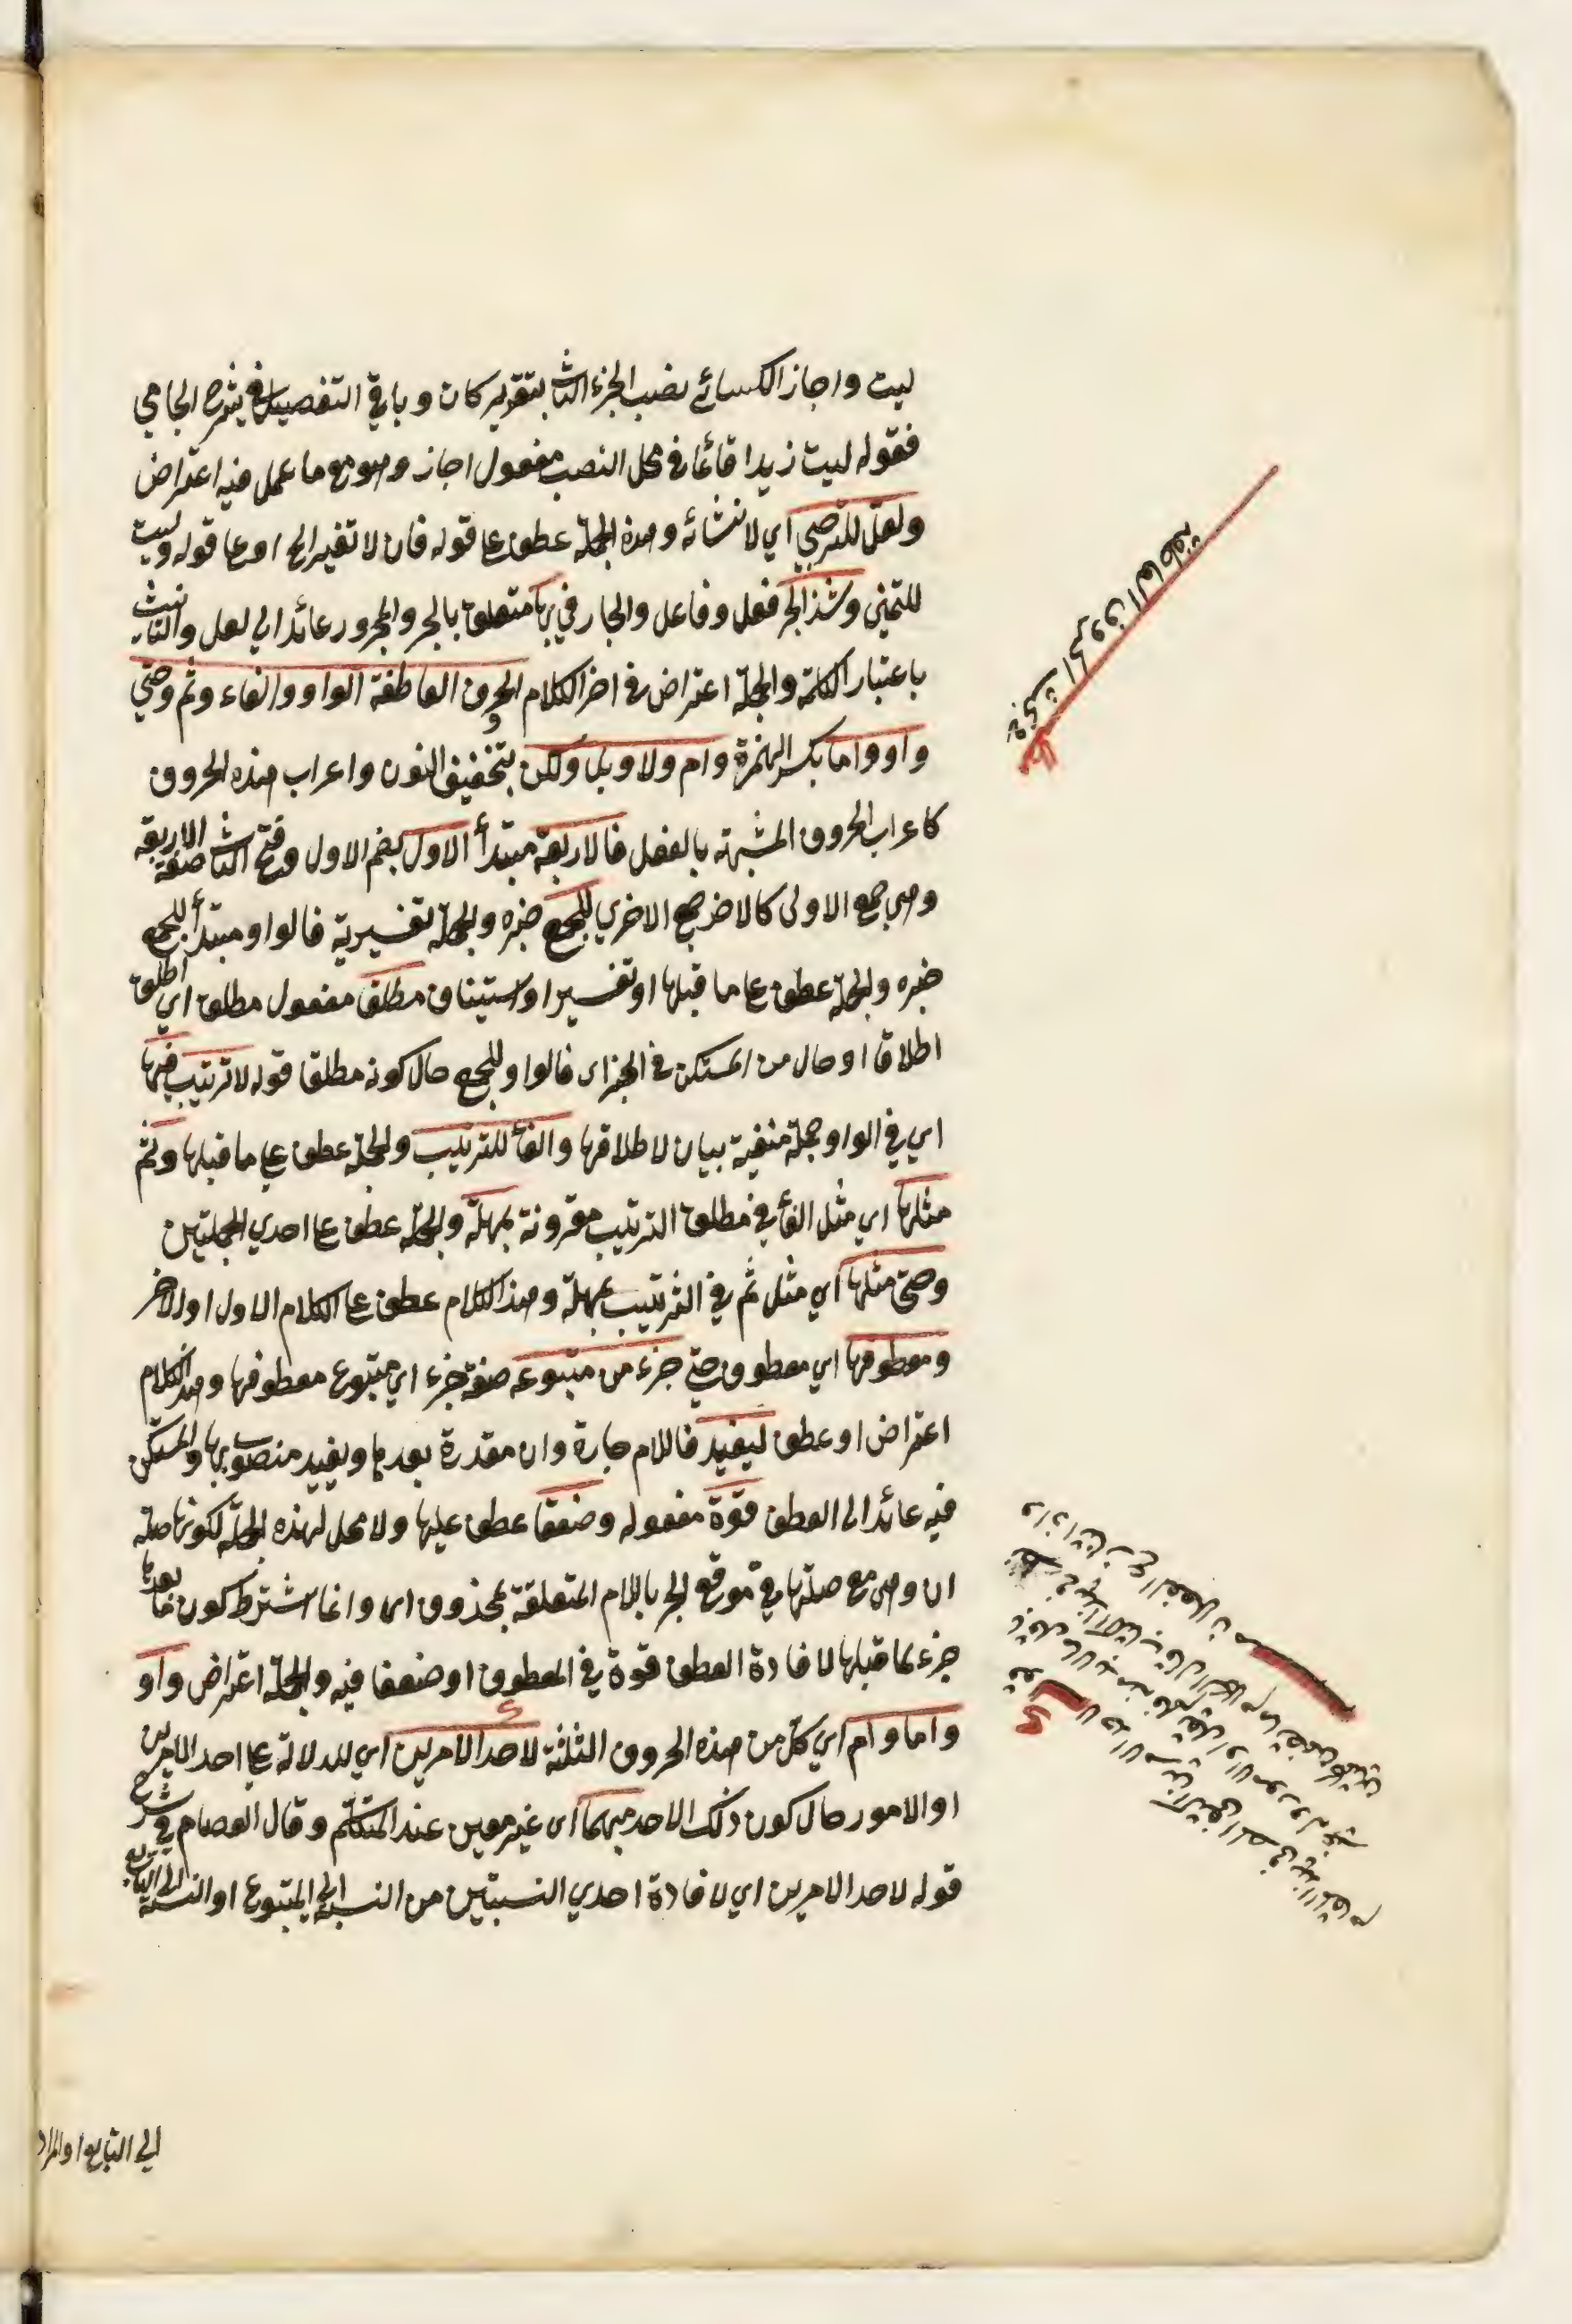 ليت واجاز الكسائے نصب الجزء الثاني بتقدير كان وباقي التفصيل في شرح الجامي
فقوله ليت زيدا قائما في محل النصب مفعول اجاز وهو مع ما عمل فيه اعتراض
ولعل للترجي اي لانشائه وهذه الجملة عطف علي قوله فان لا تغير الخ او علي قوله وليت
للتمني وشذ الجر فعل وفاعل والجار في بها متعلق بالجر والمجرور عائد الي لعل والتانيث
باعتبار الكلمة والجملة اعتراض في اخر الكلام الحروف العاطفة الواو والفاء وثم وحتي
واو واما بكسر الهمزة وام ولا وبل ولكن بتخفيف النون واعراب هذه الحروف
كاعراب الحروف المشبهة بالفعل فالاربعة مبتدأ الاول بضم الاول وفتح الثاني صفة الاربعة
وهي جمع الاولى كالاخر جمع الاخري للجمع خبره والجملة تفسيرية فالواو مبتدأ للجمع
خبره والجملة عطف علي ما قبلها او تفسير او استيناف مطلقا مفعول مطلق اي اطلق
اطلاقا او حال من المستكن في الخبر اى فالواو للجمع حال كونه مطلقا قوله لا ترتيب فيها
اي في الواو جملة منفية بيان لاطلاقها والفأ للترتيب والجملة عطف علي ما قبلها وثم
مثلها اي مثل الفأ في مطلق الترتيب مقرونة بمهلة والجملة عطف علي احدي الجملتين
وحتي مثلها اي مثل ثم في الترتيب بمهلة وهذ الكلام عطف علي الكلام الاول او الاخر
ومعطوفها اي معطوف حتي جزء من متبوعه صفة جزء اي متبوع معطوفها وهذ الكلام
اعتراض او عطف ليفيد فاللام جارة وان مقدرة بعدها ويفيد منصوب بها والمستكن
فيه عائد الى العطف قوة مفعوله وضعفا عطف عليها ولا محل لهذه الجملة لكونها صلة
ان وهى مع صلتها في موقع الجر باللام المتعلقة بمحذوف اما وانما اشترط كون ما بعدها
جزء لما قبلها لافادة العطف قوة في المعطوف او ضعفا فيه والجملة اعتراض واو
واما وام اي كل من هذه الحروف الثلثة لاحد الامرين اي للدلالة علي احد الامرين
او الامور حال كون ذلك الاحد مبهما اى غير معين عند المتكلم وقال العصام في شرح
قوله لاحد الامرين اي لافادة احدي النسبتين من النسبة الي المتبوع او النسبة الى التابع
الي التابع او المراد
الحروف العاطفة